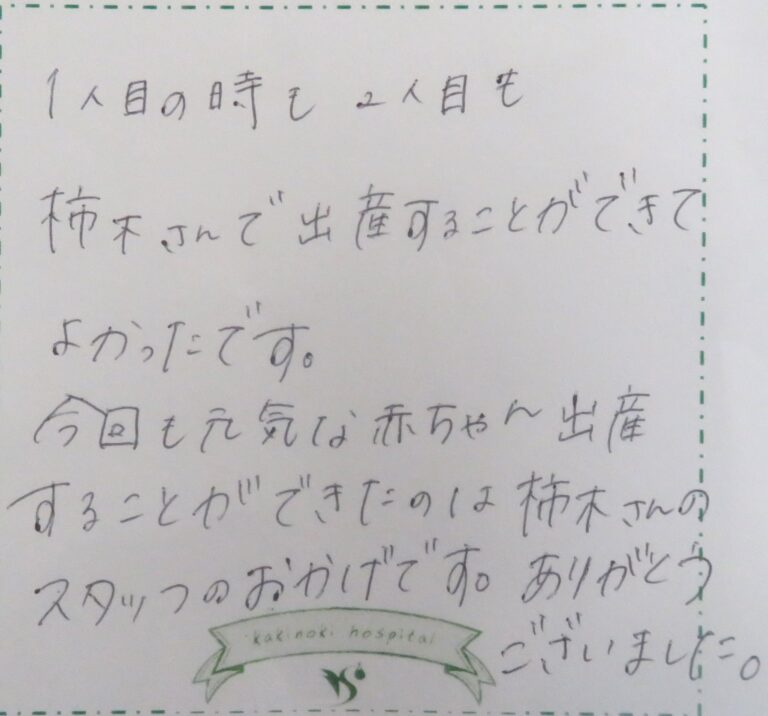 1人目の時も 2人目も
柿木さんで出産することができて
よかったです。
今回も元気な赤ちゃん出産
することができたのは柿木さんの
スタッフのおかげです。ありがとう
ございました。
kakinoki hospital